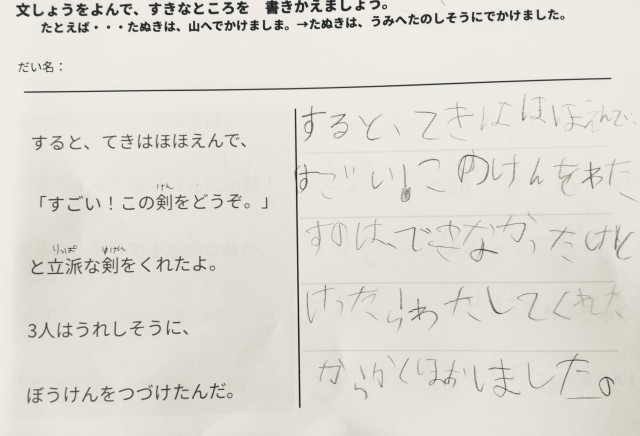 文しょうをよんで、すきなところを　書きかえましょう。
たとえば・・・たぬきは、山へでかけましま。→たぬきは、うみへたのしそうにでかけました。
だい名：
すると、てきはほほえんで、
「すごい！この剣をどうぞ。」
と立派な剣をくれたよ。
3人はうれしそうに、
ぼうけんをつづけたんだ。
すると、てきはほほえんで、
すごい！このけんをわた
すのは、できなかったけど
けったら！わたしてくれた
からかくほおしました。